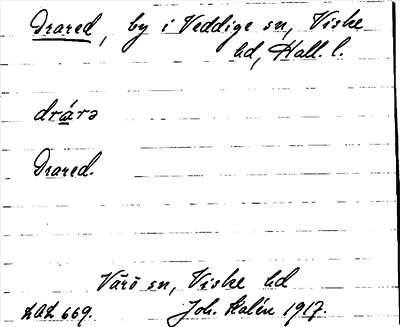 Drared, by i Veddige sn, Viske
hd, Hall. l.
drárə
Drared.
Värö sn, Viske hd
669. Joh. Kalén 1917.